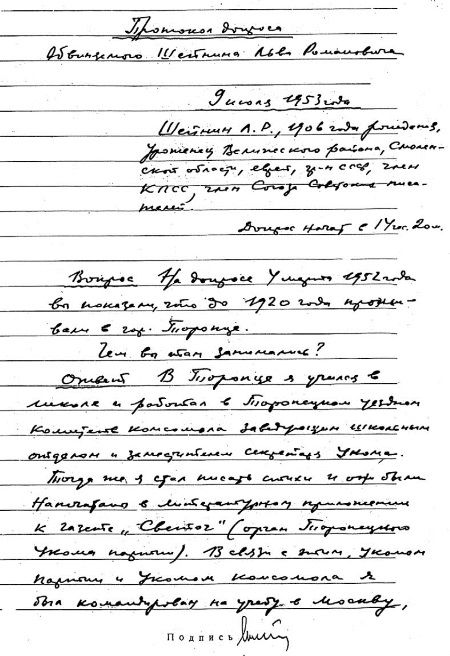 Протокол допроса
Обвиняемого Шейнина Льва Романовича
9 июля 1953 года
Шейнин Л.Р., 1906 года рождения,
уроженец Велижского района, Смолен-
ской области, еврей, гр-н СССР, член
КПСС, член Союза Советских писа-
телей.
Допрос начат в 14 час. 20 м.
Вопрос На допросе 4 марта 1952 года
вы показали, что до 1920 года прожи-
вали в гор. Торопце.
Чем вы там занимались?
Ответ В Торопце я учился в
школе и работал в Торопецком уездном
комитете комсомола заведующим школьным
отделом и заместителем секретаря укома.
Тогда же я стал писать стихи и они были
напечатаны в литературном приложении
к газете „Светоч" (орган Торопецкого
Укома партии). В связи с этим, Укомом
партии и Укомом комсомола я
был командирован на учебу в Москву,
Подпись